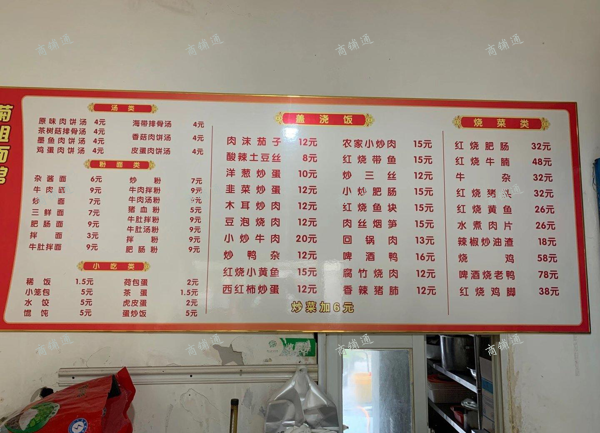 商铺通 商铺通 商铺通
菊姐面馆
汤类
原味肉饼汤 4元 海带排骨汤 4元
茶树菇排骨汤 4元
墨鱼肉饼汤 4元 香菇肉饼汤 4元
鸡蛋肉饼汤 4元 皮蛋肉饼汤 4元
粉面类
杂酱面 6元 炒粉 7元
牛肉面 9元 牛肉拌粉 9元
炒面 7元 牛肉汤粉 9元
三鲜面 7元 猪血粉 5元
肥肠面 9元 牛肚拌粉 9元
拌面 3元 牛肚汤粉 9元
牛肚拌面 9元 拌粉
肥肠粉 9元
小吃类
稀饭 1.5元 荷包蛋 2元
小笼包 5元 茶蛋 1.5元
水饺 5元 虎皮蛋 2元
馄饨 5元 蛋炒饭 5元
盖浇饭
肉沫茄子 12元 农家小炒肉 15元
酸辣土豆丝 8元 红烧带鱼 15元
洋葱炒蛋 10元 炒三丝 12元
韭菜炒蛋 12元 小炒肥肠 15元
木耳炒肉 12元 红烧鱼块 15元
豆泡烧肉 12元 肉丝烟笋 15元
小炒牛肉 20元 回锅肉 13元
炒鸭杂 12元 啤酒鸭 16元
红烧小黄鱼 15元 腐竹烧肉 12元
西红柿炒蛋 12元 香辣猪肺 12元
炒菜加6元
烧菜类
红烧肥肠 32元
红烧牛腩 48元
牛杂 32元
红烧猪 32元
红烧黄鱼 26元
水煮肉片 26元
辣椒炒油渣 18元
烧鸡 58元
啤酒烧老鸭 78元
红烧鸡脚 38元
商铺通 商铺通 商铺通